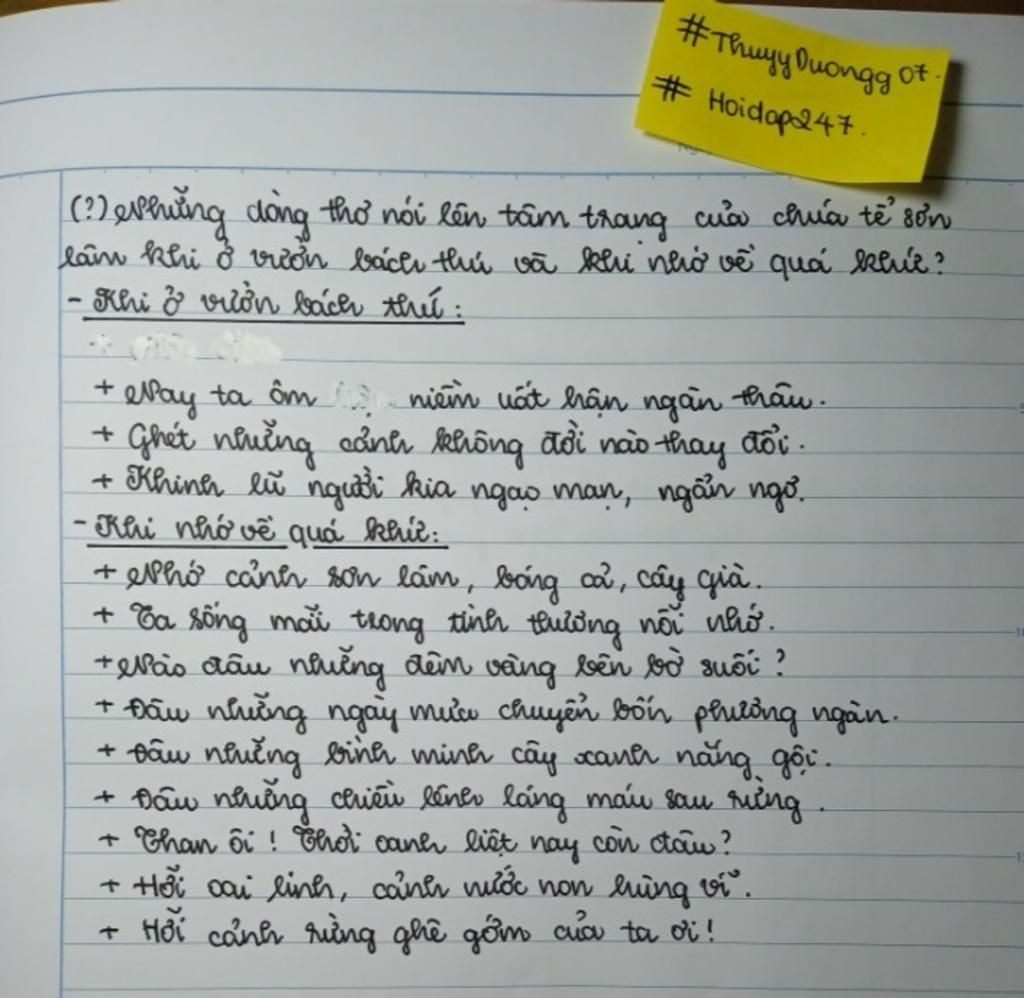 #ThuyyDuongg07.
# Hoidap247.
(?) Những dòng thơ nói lên tâm trạng của chúa tể sơn
lâm khi ở vườn bách thú và khi nhớ về quá khứ?
- Khi ở vườn bách thú:
+ Nay ta ôm niềm uất hận ngàn thâu.
+ Ghét những cảnh không đời nào thay đổi.
+ Khinh lũ người kia ngạo mạn, ngẩn ngơ.
- Khi nhớ về quá khứ:
+ Nhớ cảnh sơn lâm, bóng cả, cây già.
+ Ta sống mãi trong tình thương nỗi nhớ.
+ Nào đâu những đêm vàng bên bờ suối?
+ Đâu những ngày mưa chuyển bốn phương ngàn.
+ Đâu những bình minh cây xanh nắng gội.
+ Đâu những chiều lênh láng máu sau rừng.
+ Than ôi! Thời oanh liệt nay còn đâu?
+ Hỡi oai linh, cảnh nước non hùng vĩ.
+ Hỡi cảnh rừng ghê gớm của ta ơi!